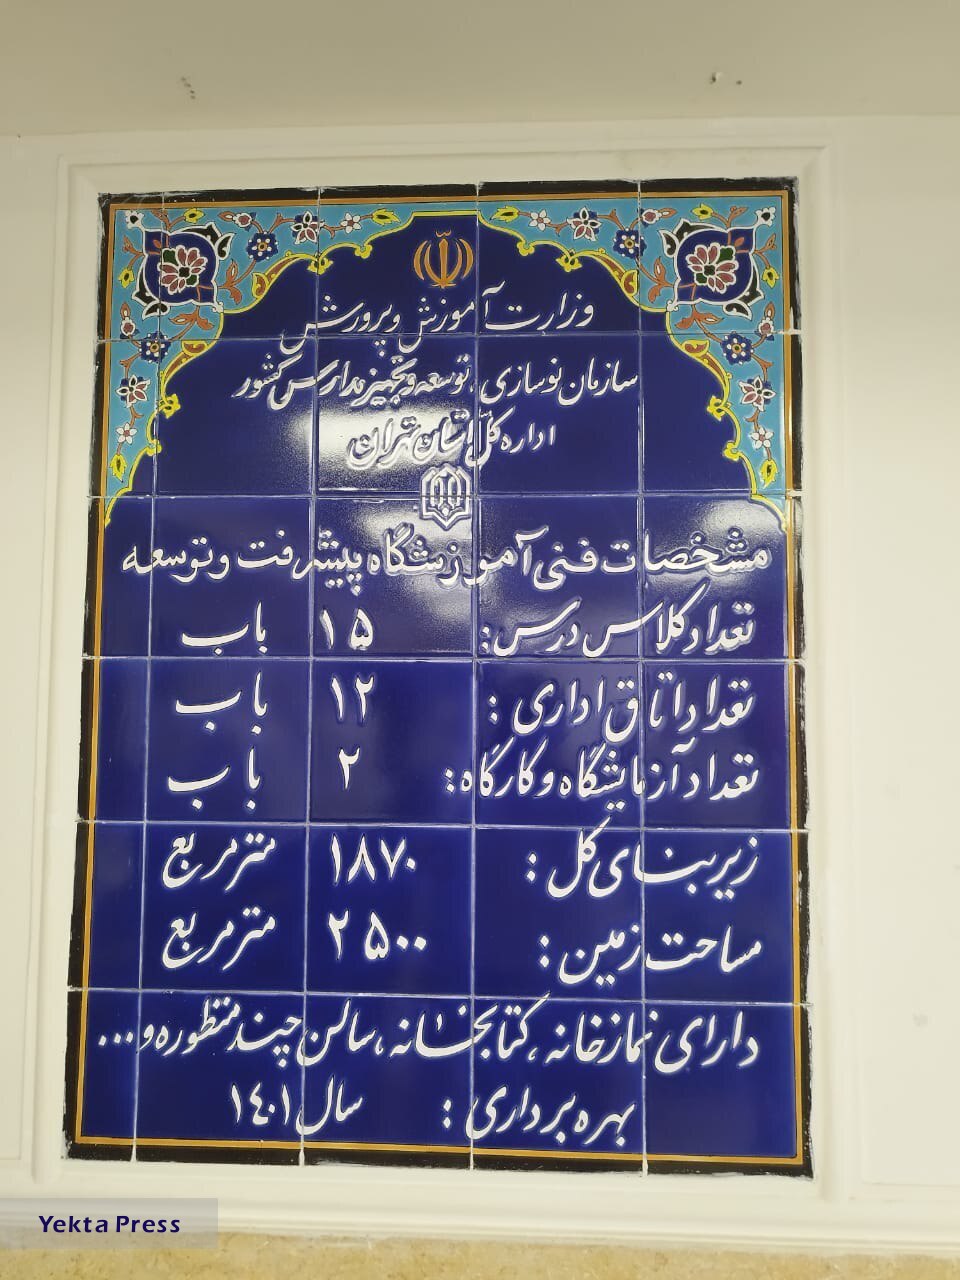 وزارت آموزش و پرورش
سازمان نوسازی، توسعه و تجهیز مدارس کشور
اداره کل استان تهران
مشخصات فنی آموزشگاه پیشرفت و توسعه
تعداد کلاس درس: ۱۵ باب
تعداد اتاق اداری: ۱۲ باب
تعداد آزمایشگاه و کارگاه: ۲ باب
زیربنای کل: ۱۸۷۰ مترمربع
مساحت زمین: ۲۵۰۰ مترمربع
دارای نمازخانه، کتابخانه، سالن چند منظوره و...
بهره برداری: سال ۱۴۰۱
Yekta Press